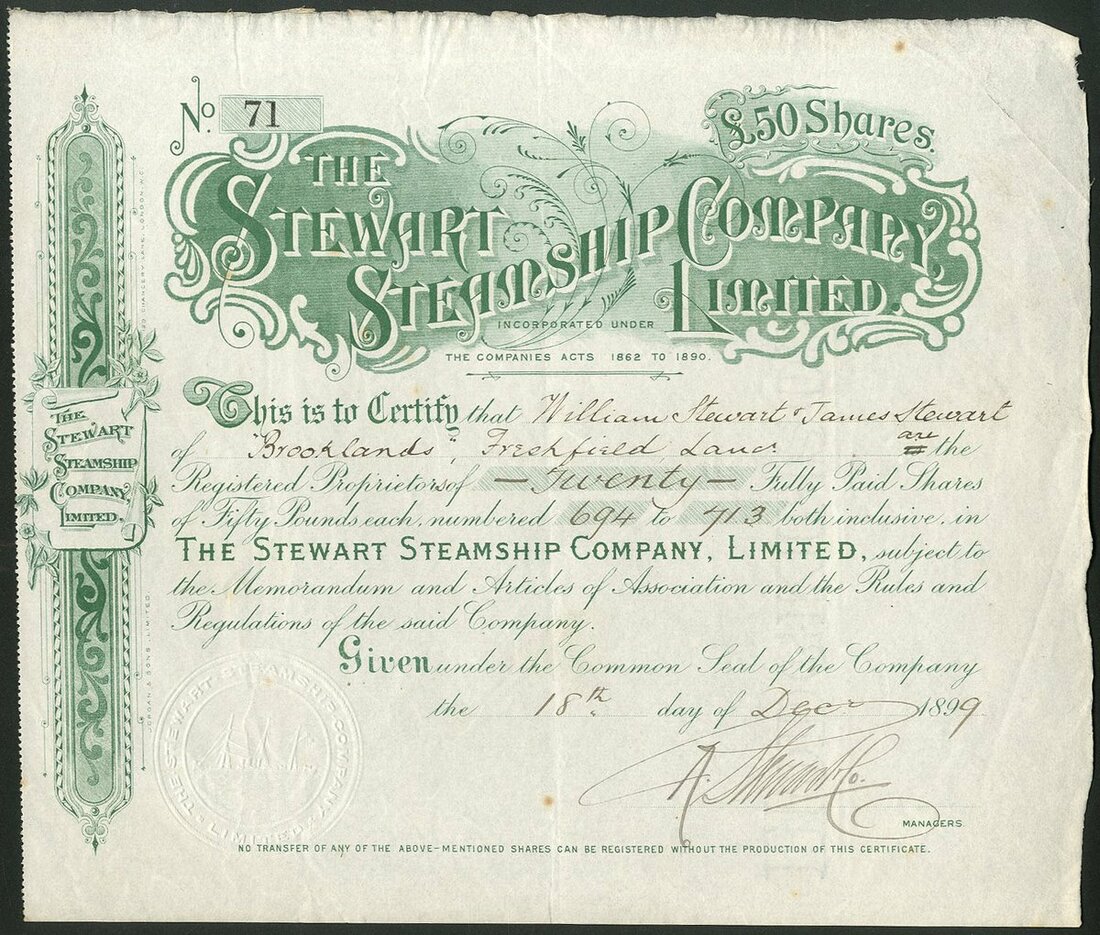 No. 71
£50 Shares.
THE
STEWART
STEAMSHIP COMPANY,
LIMITED.
INCORPORATED UNDER
THE COMPANIES ACTS 1862 TO 1890.
This is to Certify that William Stewart & James Stewart
of "Brooklands", Freshfield Lanc: are the
Registered Proprietors of — Twenty — Fully Paid Shares
of Fifty Pounds each, numbered 694 to 713 both inclusive, in
THE STEWART STEAMSHIP COMPANY, LIMITED, subject to
the Memorandum and Articles of Association and the Rules and
Regulations of the said Company.
Given under the Common Seal of the Company
the 18th day of Decr 1899
Stewart & Co.
MANAGERS.
NO TRANSFER OF ANY OF THE ABOVE-MENTIONED SHARES CAN BE REGISTERED WITHOUT THE PRODUCTION OF THIS CERTIFICATE.
THE
STEWART
STEAMSHIP
COMPANY,
LIMITED.
THE STEWART STEAMSHIP COMPANY LIMITED
& SONS, LIMITED.
CHANCERY LANE, LONDON, W.C.